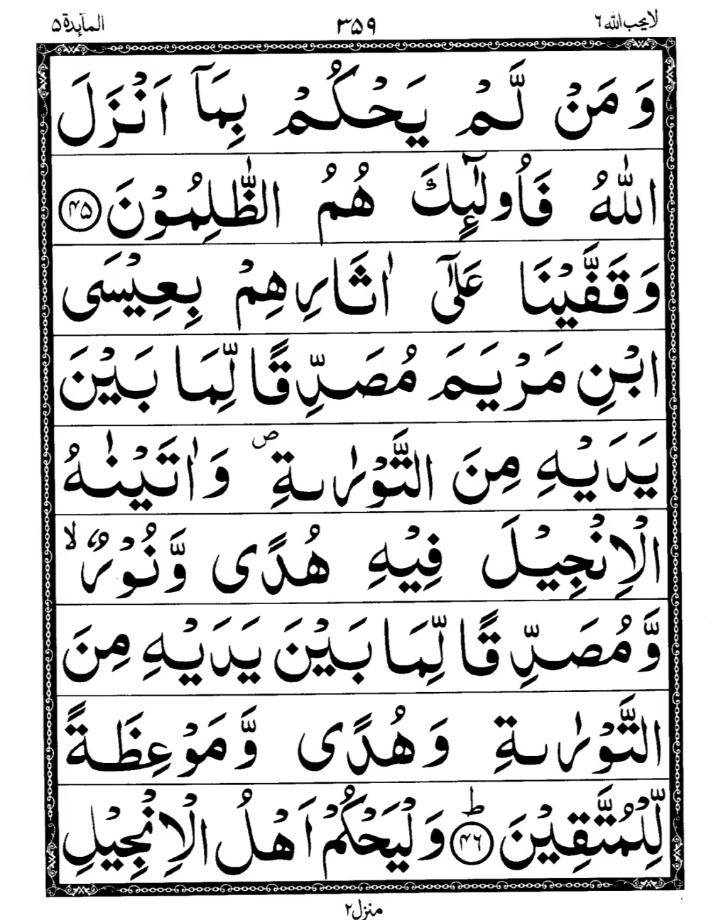 لایحب الله ۶ ۳۵۹ المآئدة ۵
وَ مَنْ لَّمْ یَحْكُمْ بِمَاۤ اَنْزَلَ
اللّٰهُ فَاُولٰٓىِٕكَ هُمُ الظّٰلِمُوْنَ ﴿۴۵﴾
وَ قَفَّیْنَا عَلٰۤی اٰثَارِهِمْ بِعِیْسَی
ابْنِ مَرْیَمَ مُصَدِّقًا لِّمَا بَیْنَ
یَدَیْهِ مِنَ التَّوْرٰىةِ ۪ وَ اٰتَیْنٰهُ
الْاِنْجِیْلَ فِیْهِ هُدًی وَّ نُوْرٌ ۙ
وَّ مُصَدِّقًا لِّمَا بَیْنَ یَدَیْهِ مِنَ
التَّوْرٰىةِ وَ هُدًی وَّ مَوْعِظَةً
لِّلْمُتَّقِیْنَ ؕ﴿۴۶﴾ وَ لْیَحْكُمْ اَهْلُ الْاِنْجِیْلِ
منزل ۲